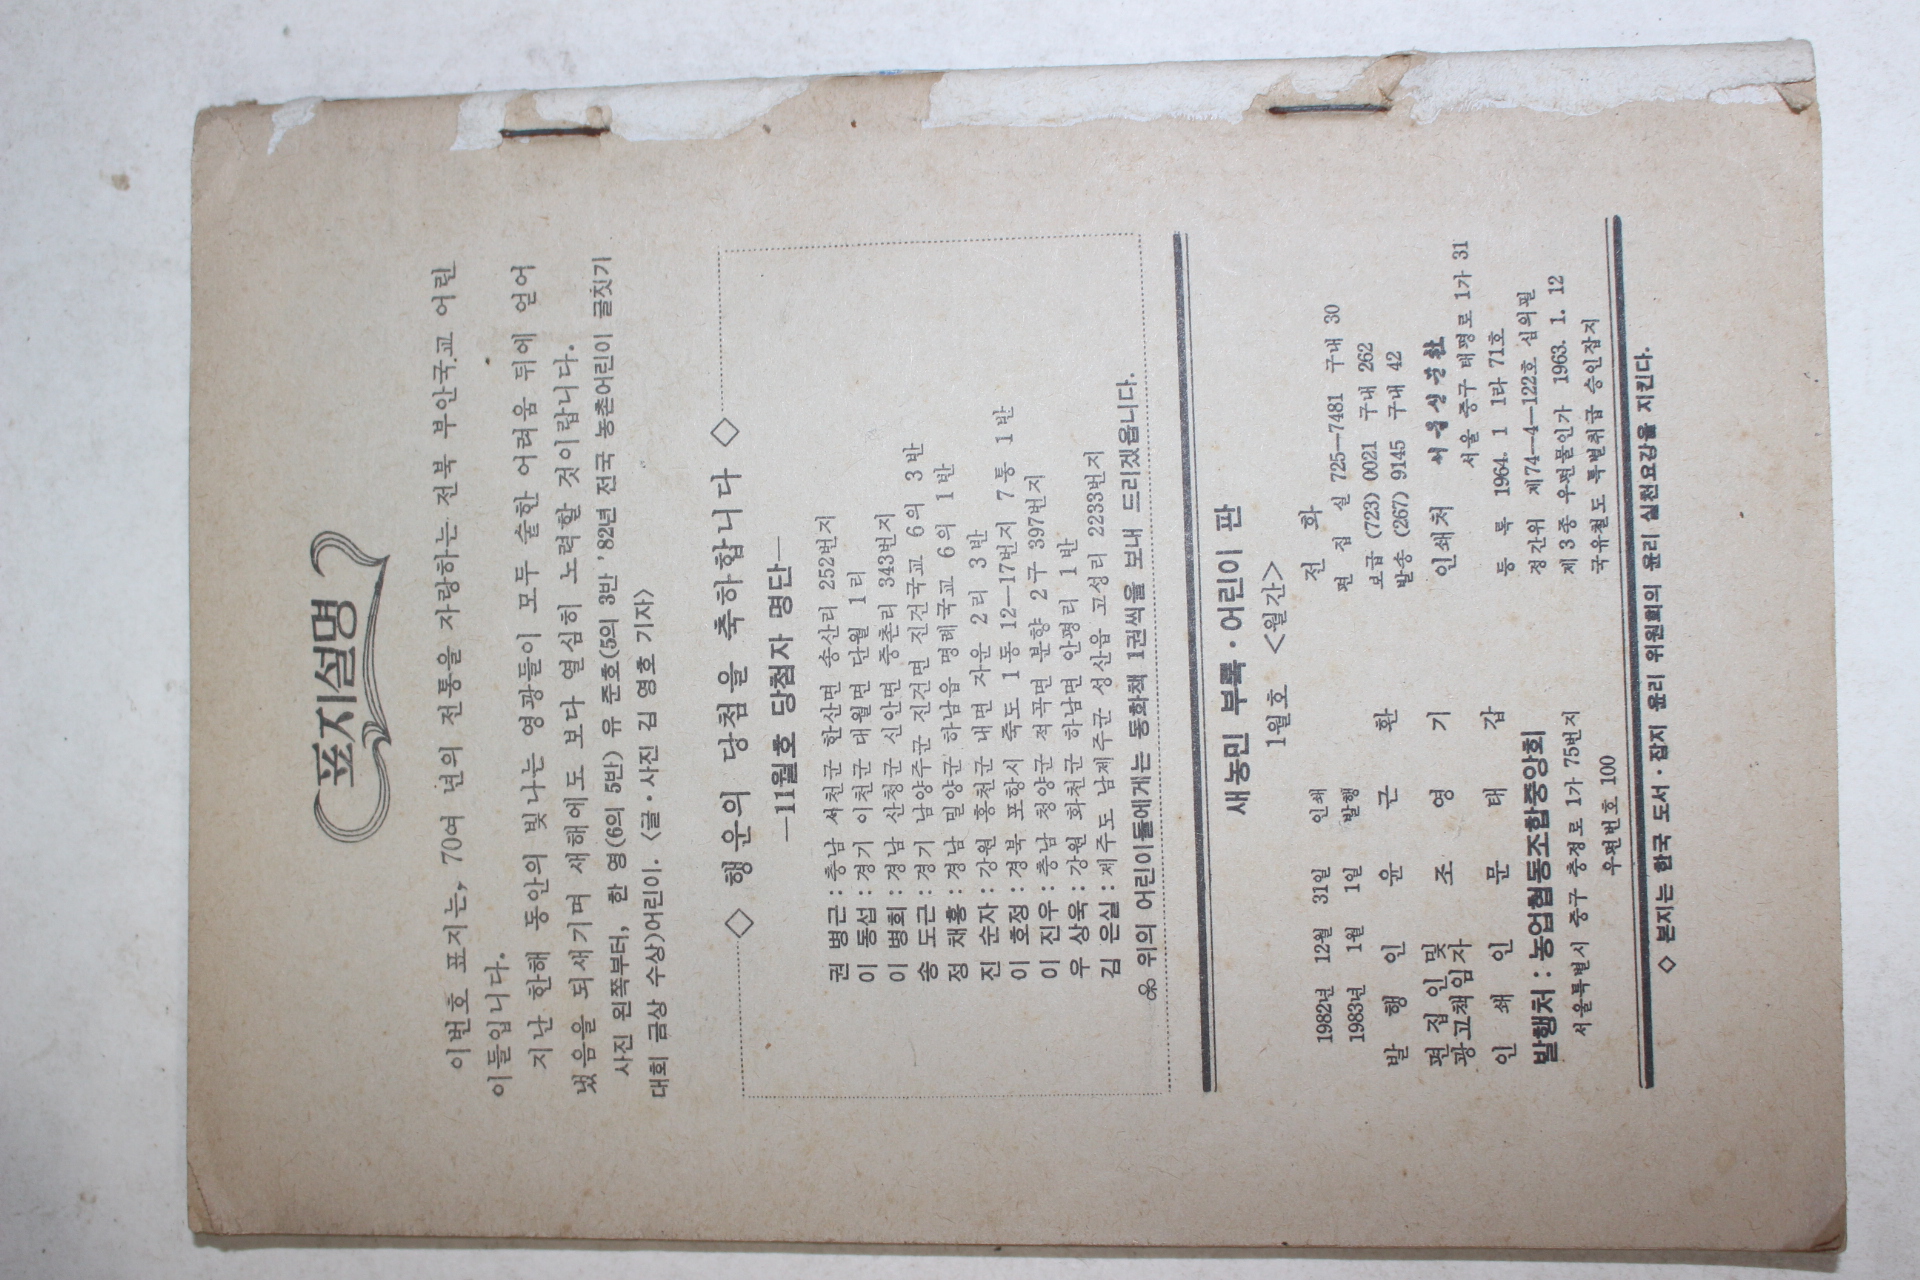 표지설명
이번호 표지는, 70여 년의 전통을 자랑하는 전북 부안국교 어린
이들입니다.
지난 한해 동안의 빛나는 영광들이 모두 숱한 어려움 뒤에 얻어
냈음을 되새기며 새해에도 보다 열심히 노력할 것이랍니다.
사진 왼쪽부터, 한 영(6의 5반) 유 준호(5의 3반 '82년 전국 농촌어린이 글짓기
대회 금상 수상)어린이. <글·사진 김 영호 기자>
◇ 행운의 당첨을 축하합니다 ◇
—11월호 당첨자 명단—
권 병근 : 충남 서천군 한산면 송산리 252번지
이 동섭 : 경기 이천군 대월면 단월 1리
이 병희 : 경남 산청군 신안면 중촌리 343번지
송 도근 : 경기 남양주군 진건면 진건국교 6의 3반
정 채홍 : 경남 밀양군 하남읍 명례국교 6의 1반
진 순자 : 강원 홍천군 내면 자운 2리 3반
이 호정 : 경북 포항시 죽도 1동 12—17번지 7통 1반
이 진우 : 충남 청양군 적곡면 분향 2구 397번지
우 상욱 : 강원 화천군 하남면 안평리 1반
김 은실 : 제주도 남제주군 성산읍 고성리 2233번지
※ 위의 어린이들에게는 동화책 1권씩을 보내 드리겠읍니다.
새농민 부록·어린이 판
1월호 <월간>
1982년 12월 31일 인쇄
1983년 1월 1일 발행
발 행 인 윤 근 환
편 집 인 및
광고책임자 조 영 기
인 쇄 인 문 태 갑
발행처 : 농업협동조합중앙회
서울특별시 중구 충정로 1가 75번지
우편번호 100
전 화
편 집 실 725—7481 구내 30
보급 (723) 0021 구내 262
발송 (267) 9145 구내 42
인쇄처 서울신문사
서울 중구 태평로 1가 31
등 록 1964. 1 1라 71호
정간위 제74—4—122호 심의필
제 3 종 우편물인가 1963. 1. 12
국유철도 특별취급 승인잡지
◇ 본지는 한국 도서·잡지 윤리 위원회의 윤리 실천요강을 지킨다.